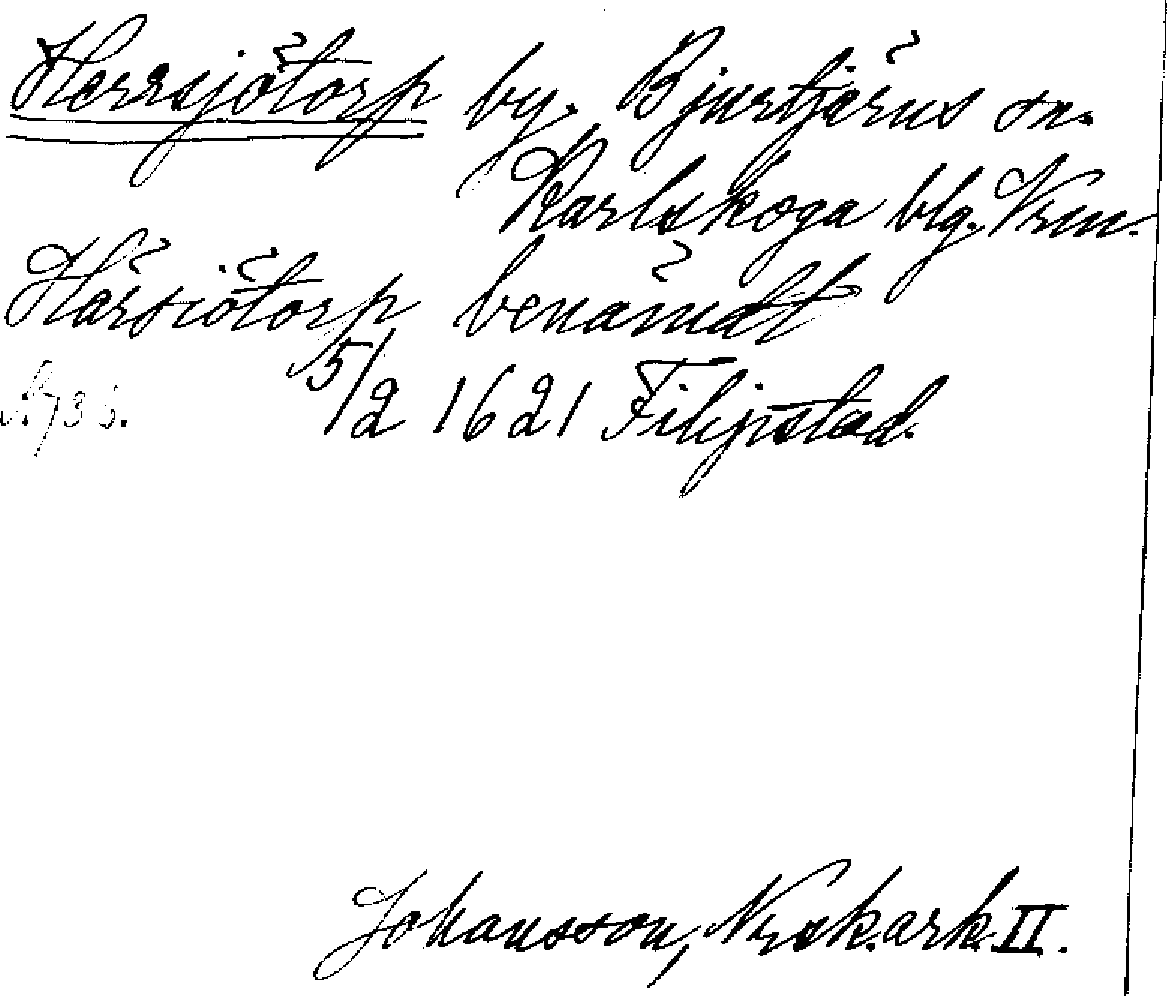 Herrsjötorp by. Bjurtjärns sn.
Karlskoga blg. Vrm.
Härsiötorp benämdt
5/2 1621 Filipstad.
Johansson, Nysk.ark. II.